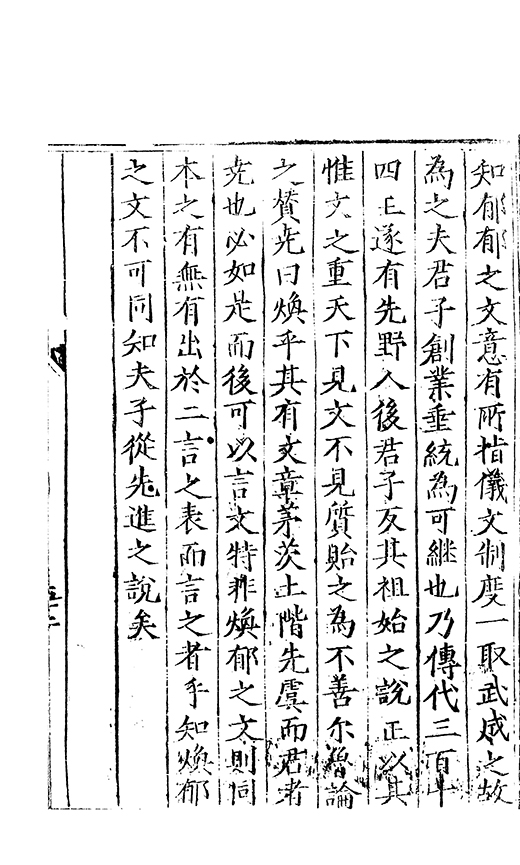 知郁郁之文意有所指儀文制度一取武成之故
為之夫君子創業垂統為可継也乃傳代三百
四五遂有先野人後君子反其祖始之說正以其
惟文之重天下見文不見質貽之為不善尔曾論
之賛尭曰煥乎其有文章茅茨土階先虞而君者
尭也必如是而後可以言文特非煥郁之文則同
本之有無有出於二言之表而言之者乎知煥郁
之文不可同知夫子從先進之說矣